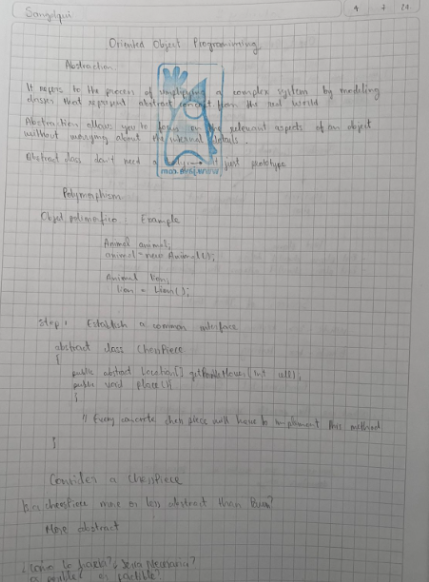 Sangolquí
Oriented Object Programming
Abstraction
It refers to the process of simplifying a complex system by modeling
classes that represent abstract concept from the real world
Abstraction allows you to focus on the relevant aspects of an object
without worrying about the internal details.
Abstract class don't need a body, just prototype
Polymorphism
Objet polimorfico. Example
Animal animal;
animal = new Animal();
Animal lion;
lion = Lion();
Step 1 Establish a common interface
abstract class ChessPiece
{
public abstract Location[] (int all);
public void place()
{
// Every concrete chess piece will have to implement this method
}
Consider a ChessPiece
Is a chessPiece more or less abstract than
More abstract